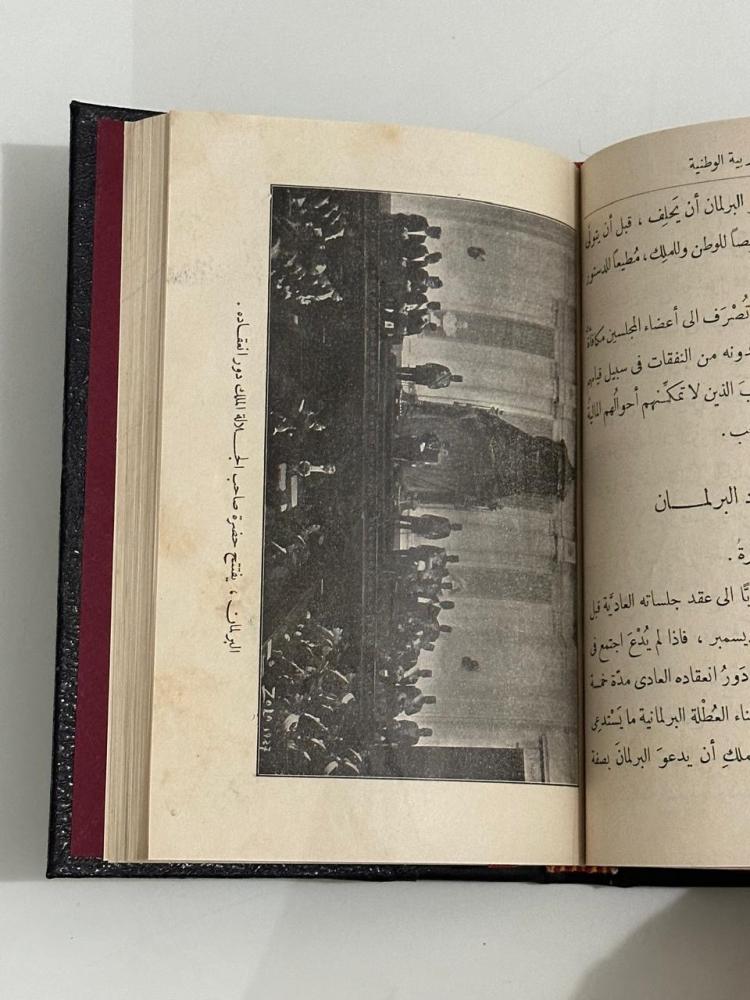 البرلمان ، يفتتح حضرة صاحب الجــلالة الملك دور انعقاده .
Zola
ربية الوطنية
البرلمان أن يَحلِف ، قبل أن يتولى
يصاً للوطن وللملِك ، مُطيعاً للدستور
تُصْرَف الى أعضاء المجلسين مكافأة
دونه من النفقات فى سبيل قيامهم
بَ الذين لا تمكِّنهم أحوالُهم المالية
ب .
د البرلمـــــان
رةُ .
يًّا الى عقد جلساته العاديَّة قبل
ديسمبر ، فاذا لم يُدْعَ اجتمع فى
دَورُ انعقاده العادى مدّة خمسة
ناء العُطْلة البرلمانية ما يَسْتدعِى
ملكِ أن يدعوَ البرلمانَ بصفة